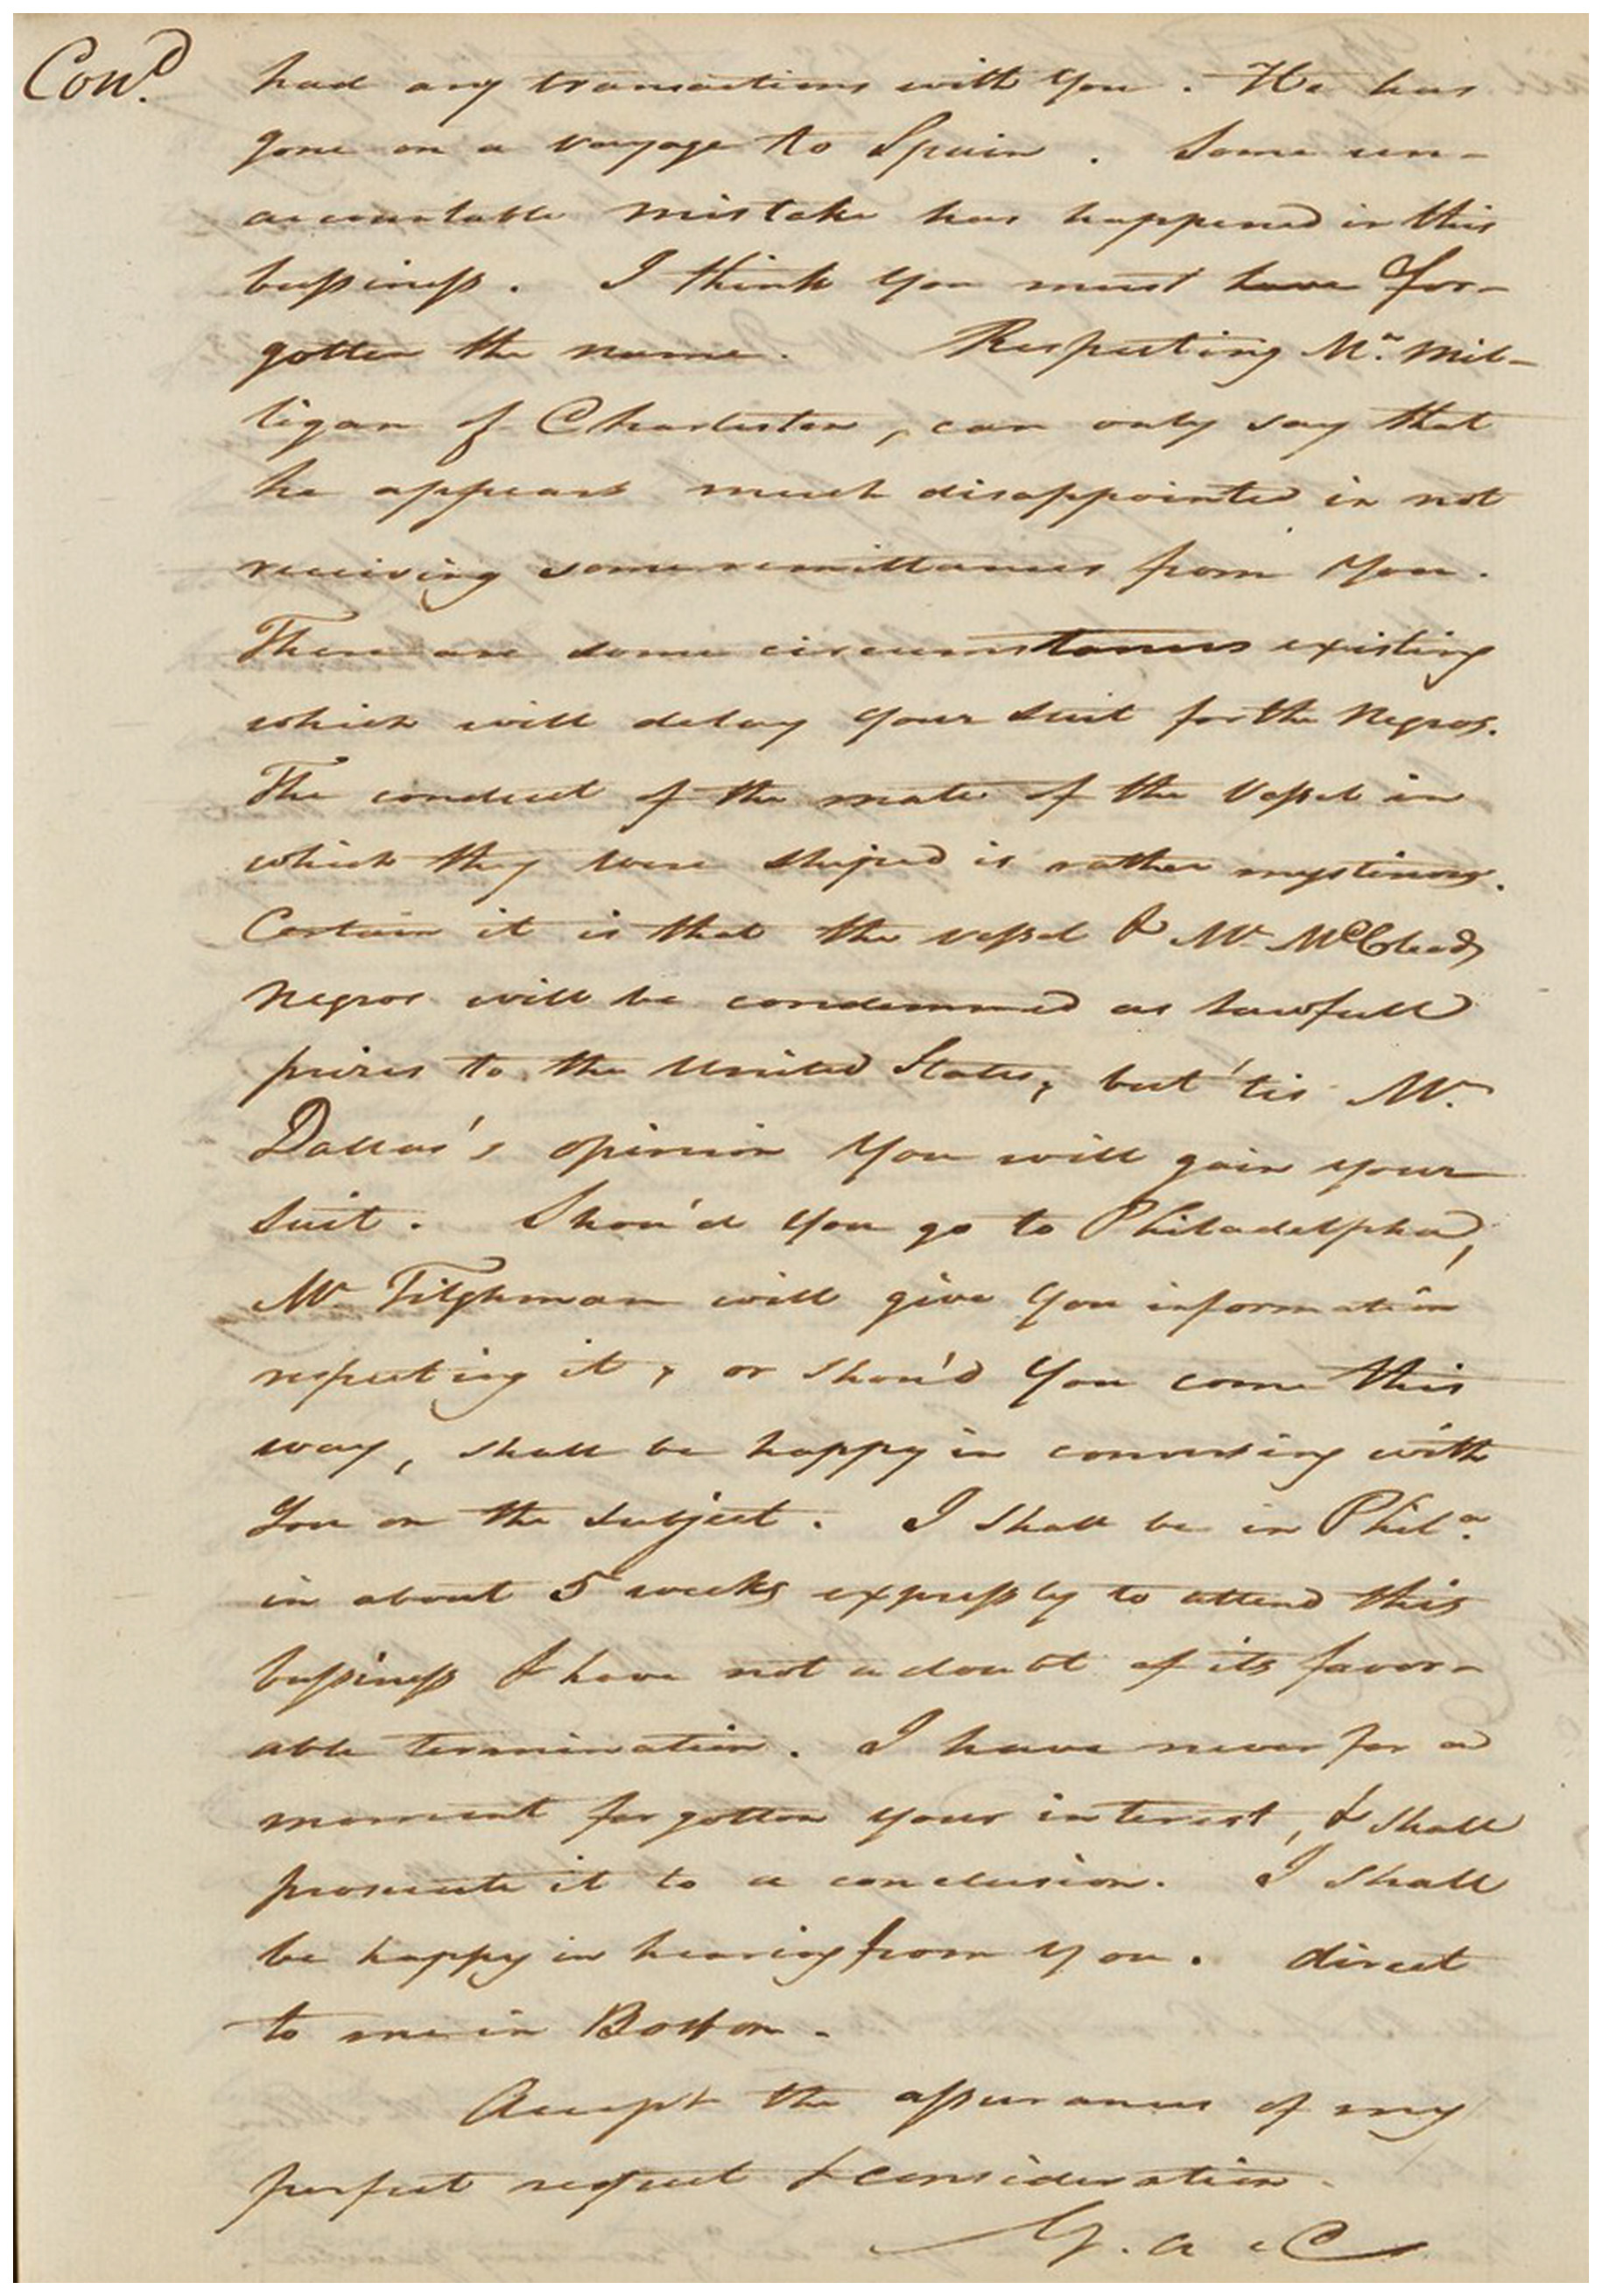 Con.d
had any transactions with you. He has
gone on a voyage to Spain. Some un-
accountable mistake has happened in this
bussiness. I think you must have for-
gotten the name. Respecting Mr. Mil-
ligan of Charleston, can only say that
he appears much disappointed in not
receiving some remittances from you.
There are some circumstances existing
which will delay your suit for the Negros.
The conduct of the mate of the Vessel in
which they were shiped is rather
Certain it is that the vessel & Mr
Negros will be condemned as lawfull
prizes to the United States, but 'tis Mr.
Dallas's opinion you will gain your
suit. Shou'd you go to Philadelphia,
Mr Tilghman will give you information
respecting it, or shou'd you come this
way, shall be happy in conversing with
you on the subject. I shall be in Phila.
in about 5 weeks expressly to attend this
bussiness & have not a doubt of its favor-
able termination. I have never for a
moment forgotten your interest, & shall
prosecute it to a conclusion. I shall
be happy in hearing from you. direct
to me in Boston.
Accept the assurances of my
perfect respect & consideration.